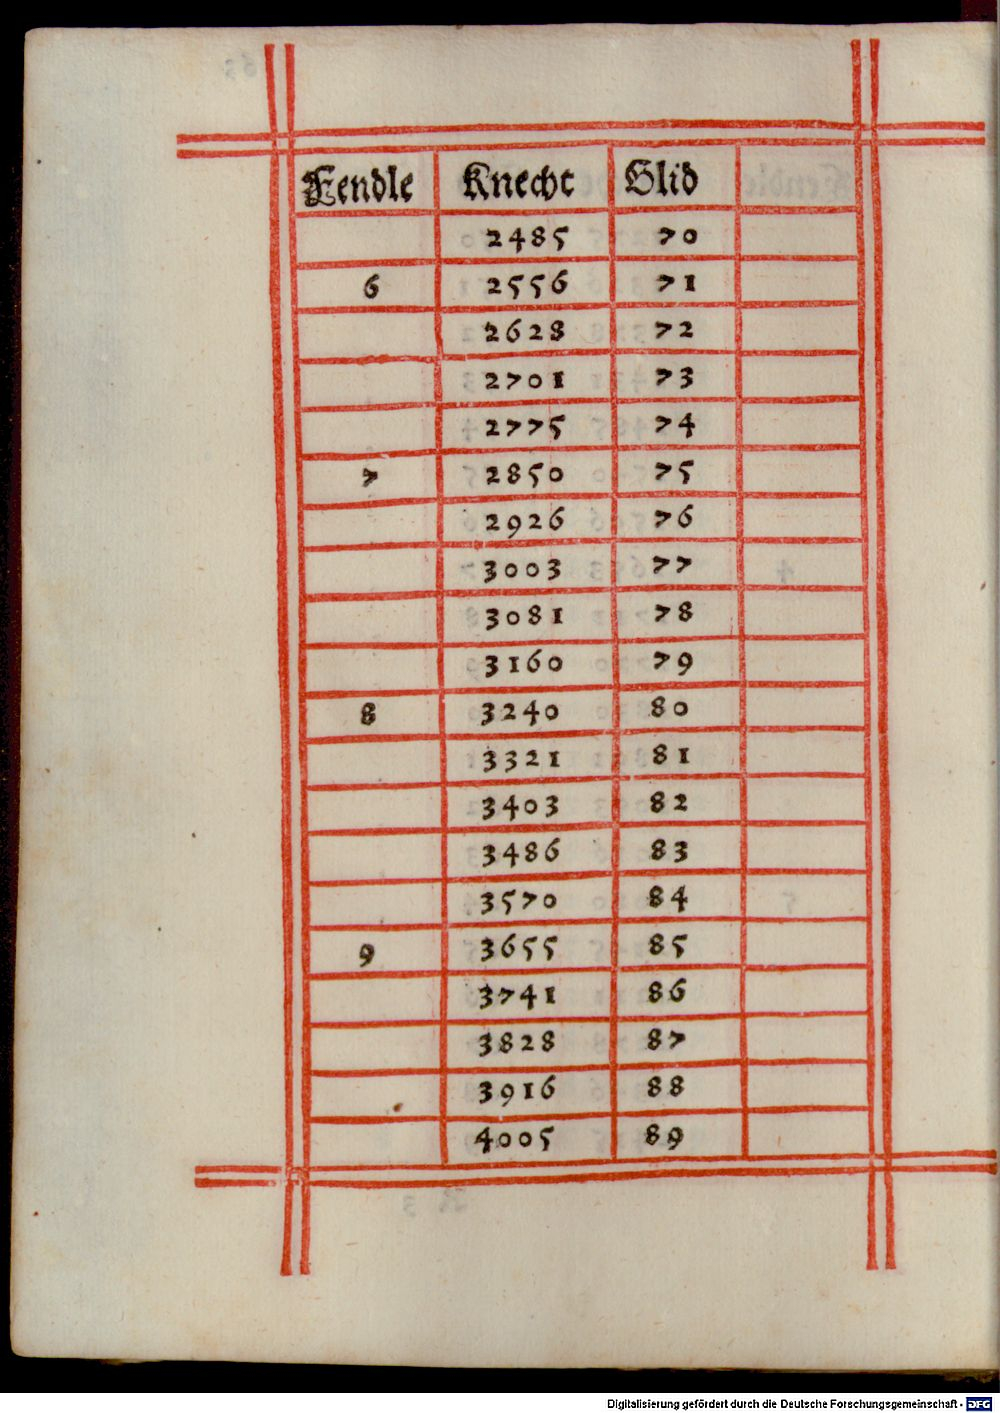 Fendle Knecht Glid
2485 70
6 2556 71
2628 72
2701 73
2775 74
7 2850 75
2926 76
3003 77
3081 78
3160 79
8 3240 80
3321 81
3403 82
3486 83
3570 84
9 3655 85
3741 86
3828 87
3916 88
4005 89
Digitalisierung gefördert durch die Deutsche Forschungsgemeinschaft - DFG